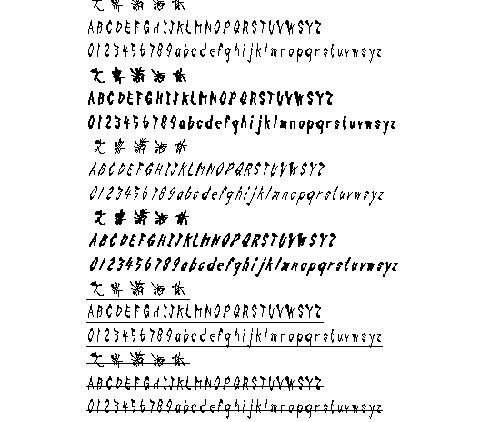 ABCDEFGHIJKLMNOPQRSTUVWSYZ
0123456789abcdefghijklmnopqrstuvwsyz
ABCDEFGHIJKLMNOPQRSTUVWSYZ
0123456789abcdefghijklmnopqrstuvwsyz
ABCDEFGHIJKLMNOPQRSTUVWSYZ
0123456789abcdefghijklmnopqrstuvwsyz
ABCDEFGHIJKLMNOPQRSTUVWSYZ
0123456789abcdefghijklmnopqrstuvwsyz
ABCDEFGHIJKLMNOPQRSTUVWSYZ
0123456789abcdefghijklmnopqrstuvwsyz
ABCDEFGHIJKLMNOPQRSTUVWSYZ
0123456789abcdefghijklmnopqrstuvwsyz